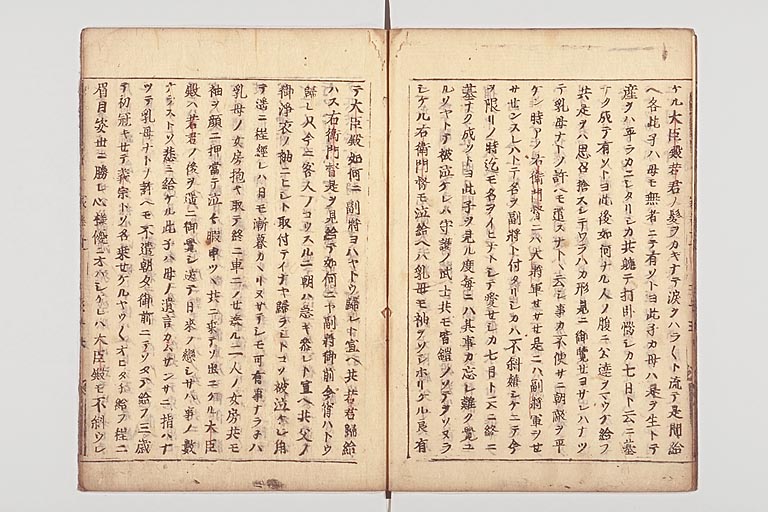 ケル大臣殿若君ノ髪ヲカキナテ涙ヲハラ〱ト流テ是聞給
ヘ各此子ハ母モ無者ニテ有ソトヨ此子カ母ハ是ヲ生トテ
産ヲハ平ラカニシタリシカ共軈テ打卧悩シカ七日ト云ニ墓
ナク成テ有ソトヨ此後如何ナル人ノ腹ニ公達ヲマウケ給フ
共是ヲハ思召捨スシテワラハカ形見ニ御覧セヨサシハナツ
テ乳母ナトノ許ヘモ遣スナト云シ事カ不便サニ朝敵ヲ平
ケン時アノ右衛門督ニハ大将軍セサセ是ニハ副将軍ヲセ
サセンスレハトテ名ヲ副将ト付タリシカハ不斜嬉シケニテ今
ヲ限リノ時迄モ名ヲイヒナトシテ愛セシカ七日ト云ニ終ニ
墓ナク成ソトヨ此子ヲ見ル度毎ニハ其事カ忘レ難ク覚ユ
ルソヤトテ被泣ケレハ守護ノ武士共モ皆鎧ノソテヲソヌラ
シケル右衛門督モ泣給ヘハ乳母モ袖ヲソシホリケル良有
テ大臣殿如何ニ副将ヨハヤトウ歸レト宣ヘ共若君歸給
ハス右衛門督是ヲ見給テ如何ニヤ副将御前今宵ハトウ
歸レ只今ニ客人ノコウスルニ朝ハ急キ参レト宣ヘ共父ノ
御浄衣ノ袖ニヒシト取付テイナヤ歸ラシトコソ被泣ケレ角
テ遥ニ程經レハ日モ漸暮カヽリヌサテシモ可有事ナラネハ
乳母ノ女房抱キ取テ終ニ車ニノセ奉ル二人ノ女房共モ
袖ヲ顔ニ押當テ泣々暇申ツヽ共ニ乗テソ出ニケル大臣
殿ハ若君ノ後ヲ遥ニ御覧シ送テ日来ノ戀シサハ事ノ数
ナラストソ悲ミ給ケル此子ハ母ノ遺言カムサンサニ指ハナ
ツテ乳母ナトノ許ヘモ不遣朝夕御前ニテソタテ給フ三歳
テ初冠キセテ義宗トソ名乗セケルヤウ〱オヒタチ給フ程ニ
眉目姿世ニ勝レ心様優ニオハシケレハ大臣殿モ不斜ウレ